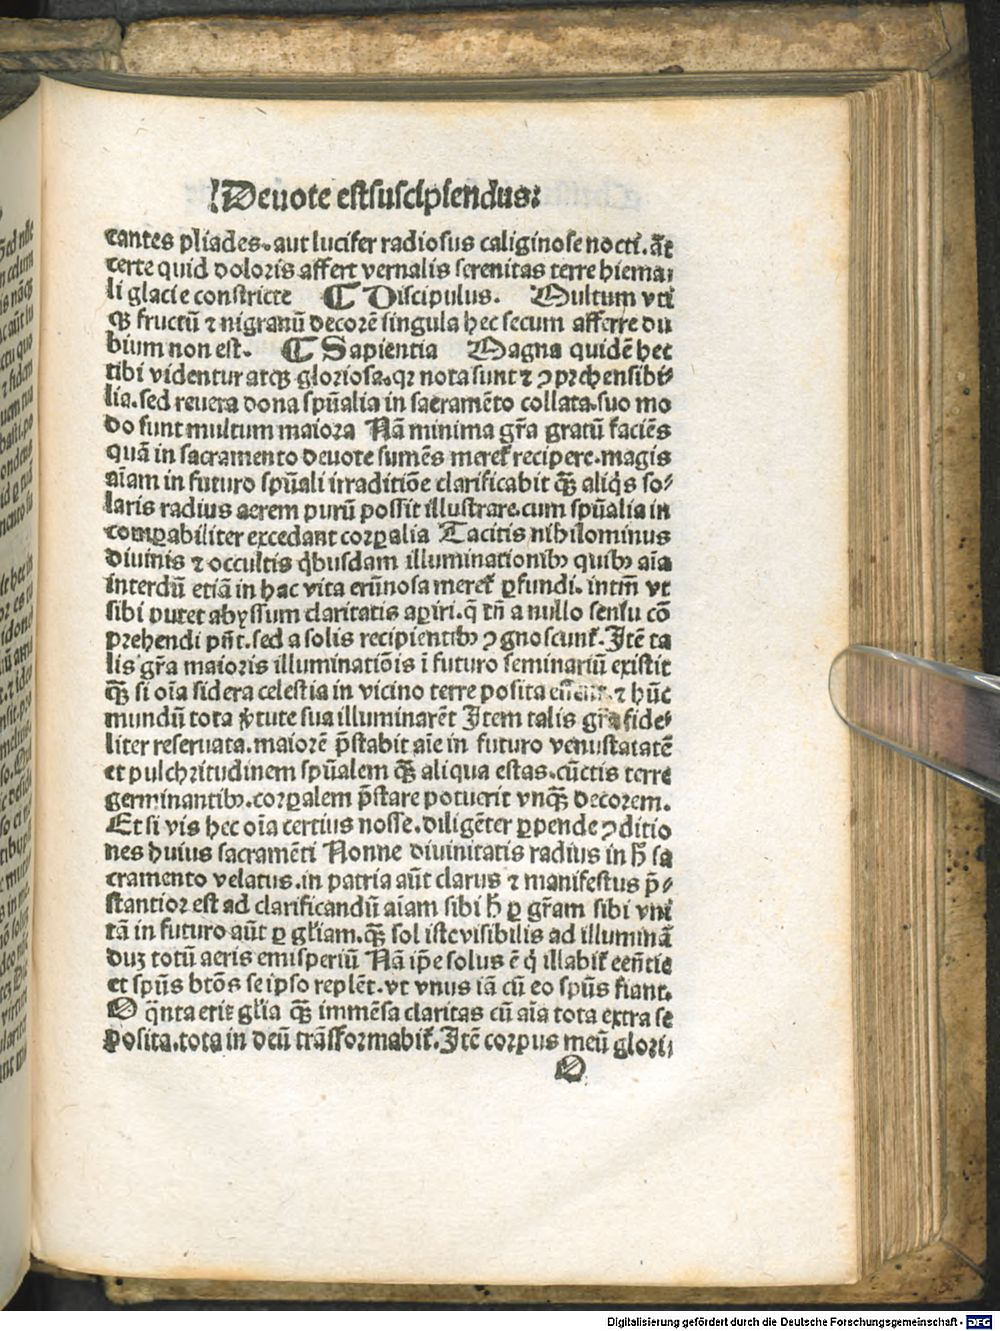 Deuote est suscipiendus:
tantes pliades. aut lucifer radiosus caliginose nocti. āt
certe quid doloris affert vernalis serenitas terre hiema⸗
li glacie constricte ¶ Discipulus. Multum vti
qꝫ fructū ⁊ nigranū decorē singula hec secum afferre du
bium non est. ¶ Sapientia Magna quidē hec
tibi videntur atqꝫ gloriosa. qꝛ nota sunt ⁊ ꝯprehensibi⸗
lia. sed reuera dona spūalia in sacramēto collata. suo mo
do sunt multum maiora Nā minima gr̄a gratū faciēs
quā in sacramento deuote sumēs meret᷑ recipere. magis
aīam in futuro spūali irraditiōe clarificabit qꝫ̄ aliq̄s so⸗
laris radius aerem purū possit illustrare. cum spūalia in
comꝑabiliter excedant corꝑalia Tacitis nihilominus
diuinis ⁊ occultis q̇busdam illuminationibꝰ quibꝰ aīa
interdū etiā in hac vita erūnosa meret᷑ ꝑfundi. intm̄ vt
sibi putet abyssum claritatis aꝑiri. q̄ tn̄ a nullo sensu cō
prehendi pn̄t. sed a solis recipientibꝰ ꝯgnoscunt᷑. Itē ta
lis gr̄a maioris illuminatiōis ī futuro seminariū existit
qꝫ̄ si oīa sidera celestia in vicino terre posita essent. ⁊ hūc
mundū tota v̓tute sua illuminarēt Item talis gr̄a fide⸗
liter reseruata. maiorē p̄stabit aīe in futuro venustatatē
et pulchritudinem spūalem qꝫ̄ aliqua estas. cūctis terre
germinantibꝰ. corꝑalem p̄stare potuerit vnqꝫ̄ decorem.
Et si vis hec oīa certius nosse. diligēter ꝑpende ꝯditio
nes huius sacramēti Nonne diuinitatis radius in h̄ sa
cramento velatus. in patria aūt clarus ⁊ manifestus p̄⸗
stantior est ad clarificandū aīam sibi h̄ ꝑ gr̄am sibi vni
tā in futuro aūt ꝑ gl̄iam. qꝫ̄ sol iste visibilis ad illuminā
duꝫ totū aeris emisperiū Nā ip̄e solus ē q̇ illabit᷑ eēntie
et spūs btōs seipso replēt. vt vnus iā cū eo spūs fiant.
O q̄nta erit gl̄ia qꝫ̄ immēsa claritas cū aīa tota extra se
posita. tota in deū trāsformabit᷑. Itē corpus meū glori⸗
O
Digitalisierung gefördert durch die Deutsche Forschungsgemeinschaft - DFG